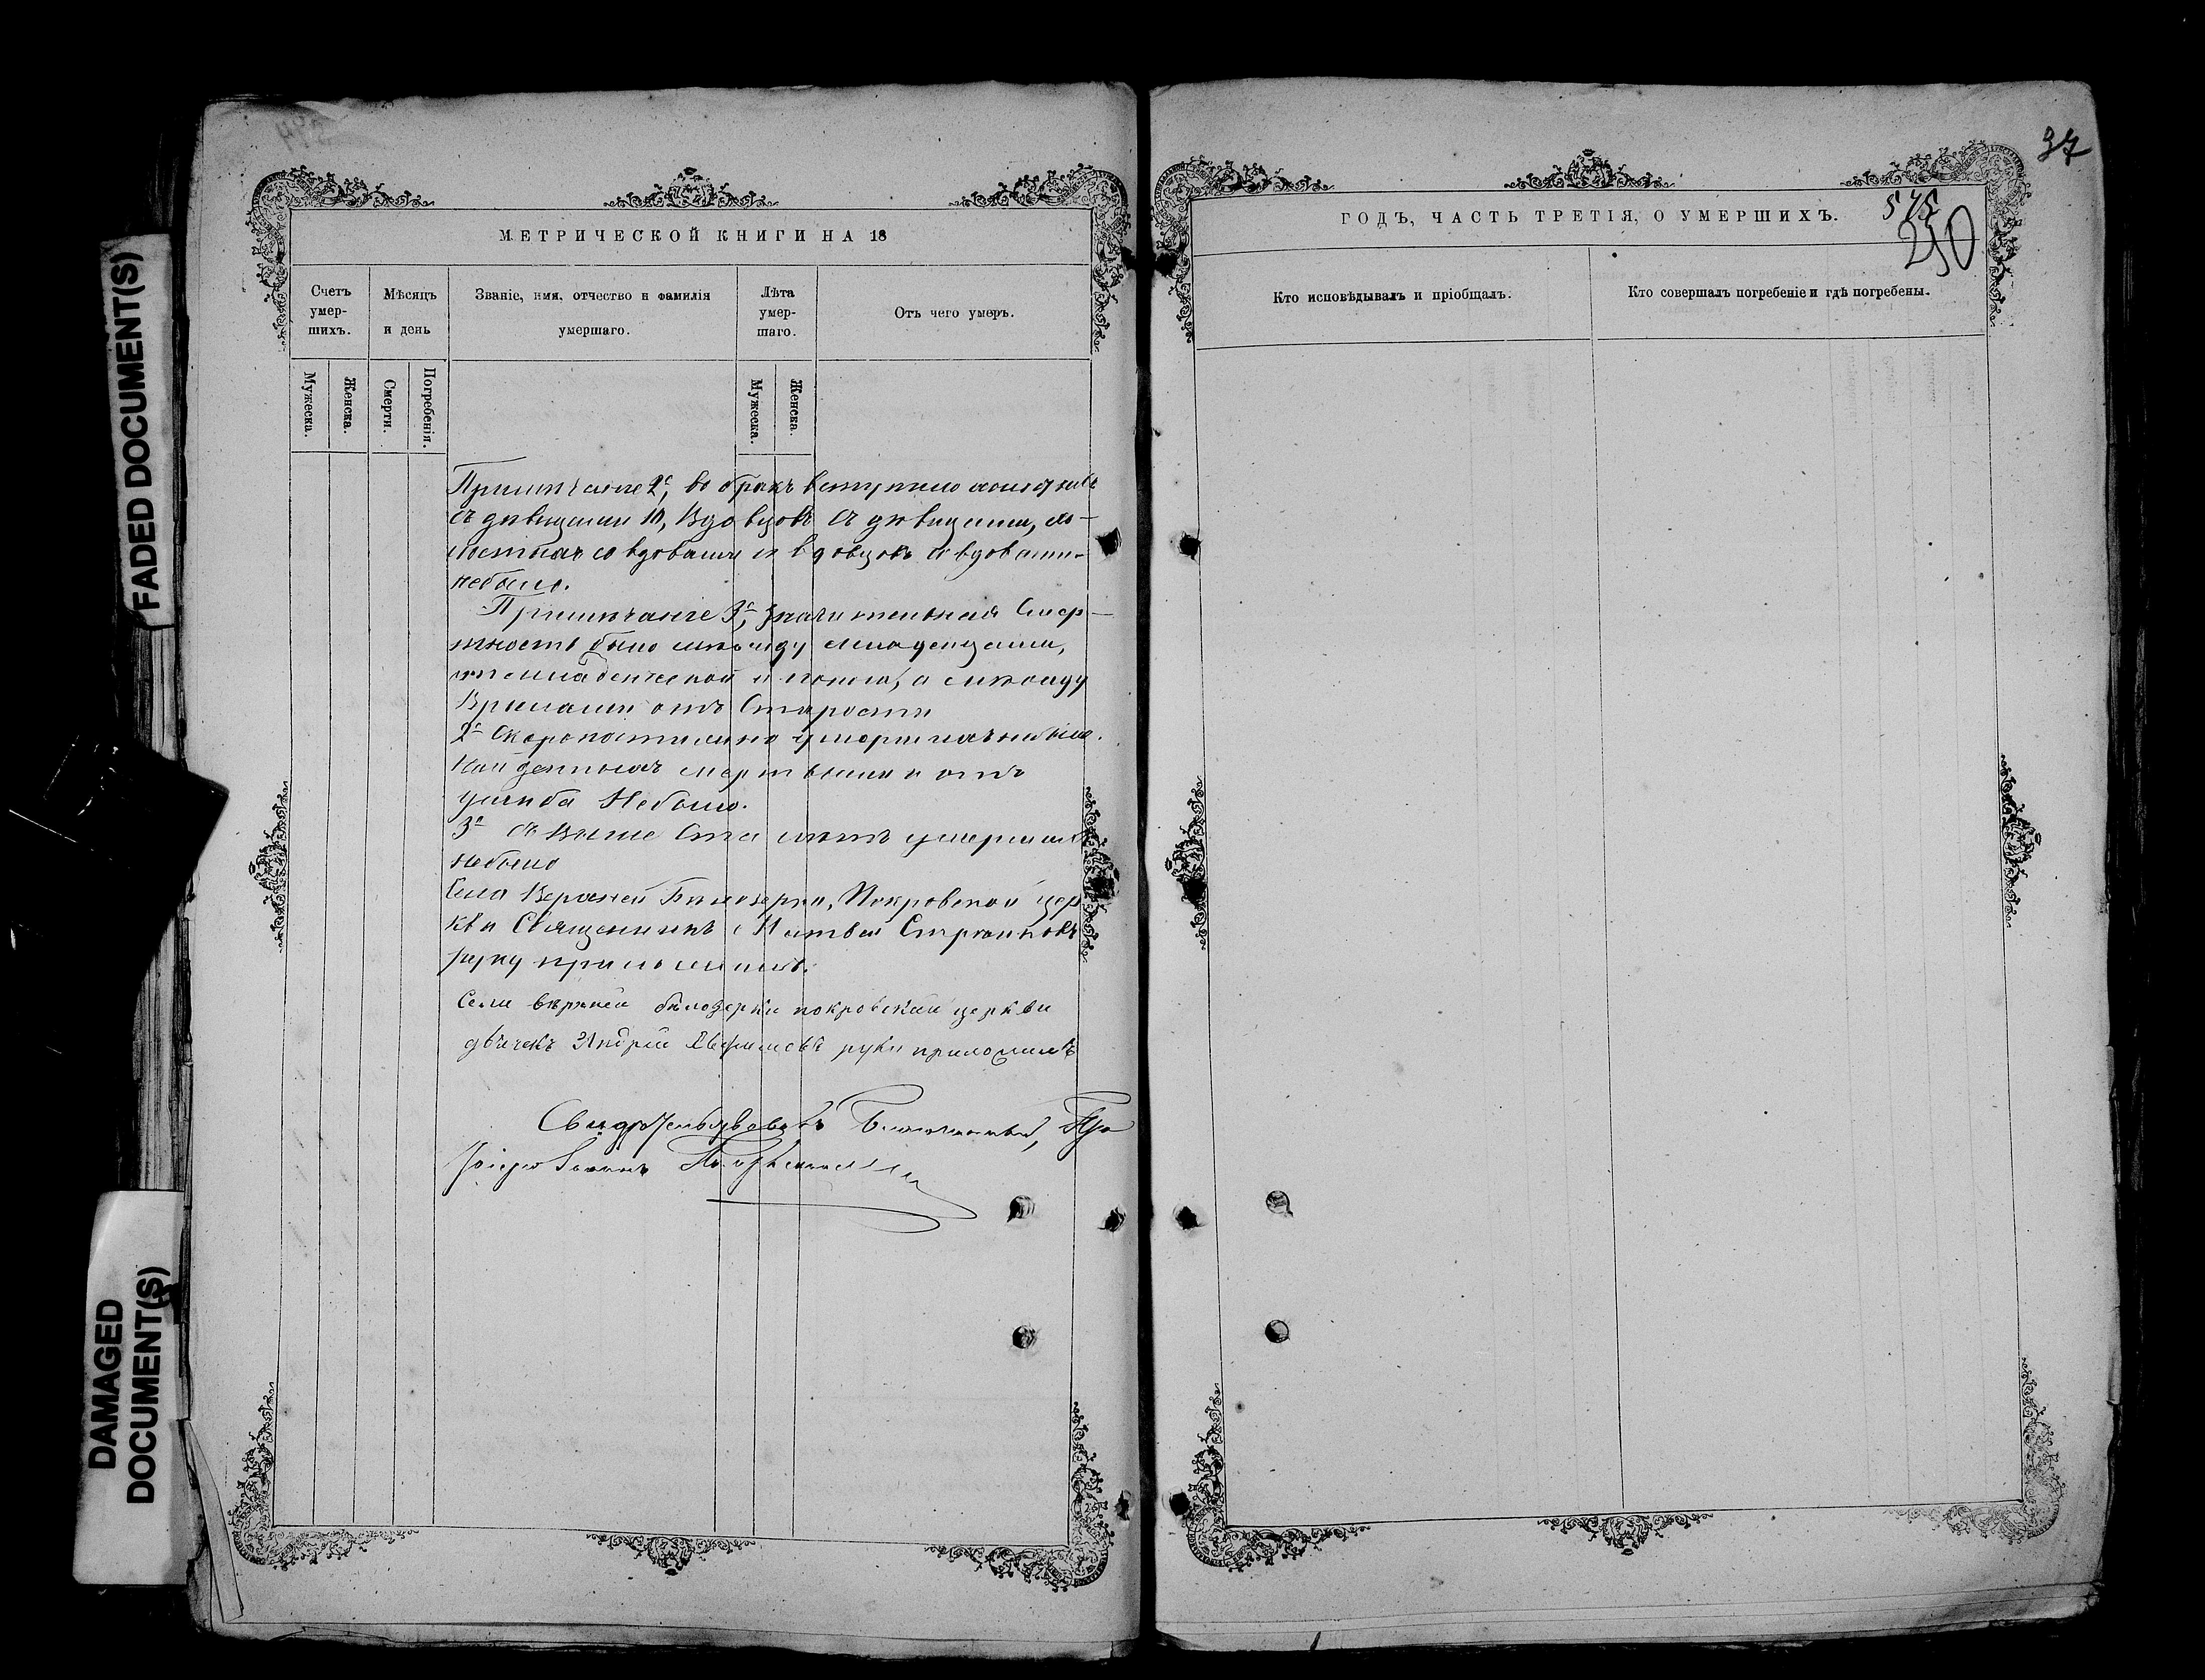 FADED DOCUMENT(S)
DAMAGED
DOCUMENT(S)
МЕТРИЧЕСКОЙ КНИГИ НА 18
Счетъ умер-шихъ.
Мѣсяцъ и день
Званіе, имя, отчество и фамилія умершаго.
Лѣта умер-шаго.
Отъ чего умеръ.
Мужеска.
Женска.
Смерти.
Погребенія.
Мужеска.
Женска.
Примѣчаніе 2е, во бракъ вступило
съ дѣвицами 10, Вдовцовъ съ дѣвицами, хо-
лостыхъ со вдовами и вдовцовъ со вдовами-
небыло.
Примѣчаніе 3е, Значительная Смер-
тность было между младенцами,
от младенческой и поноса, а между
Взрослыми отъ Старости
2е Скоропостижно умершихъ небыло.
Найденныхъ мертвыми и отъ
ушиба Небыло.
3е Свыше Ста лѣтъ умершихъ
небыло
Села Верхней Бѣлозерки, Покровской цер
кви Священникъ Матвей Стрижковъ
руку приложилъ.
Села вѣрхней бѣлозерки покровской церкви
дьячекъ Андрей Ефимовъ руку приложилъ
Свидѣтельствовалъ Благочинный, Про
тоіерей Іоаннъ
37
ГОДЪ, ЧАСТЬ ТРЕТІЯ, О УМЕРШИХЪ.
575
250
Кто исповѣдывалъ и пріобщалъ.
Кто совершалъ погребеніе и гдѣ погребены.